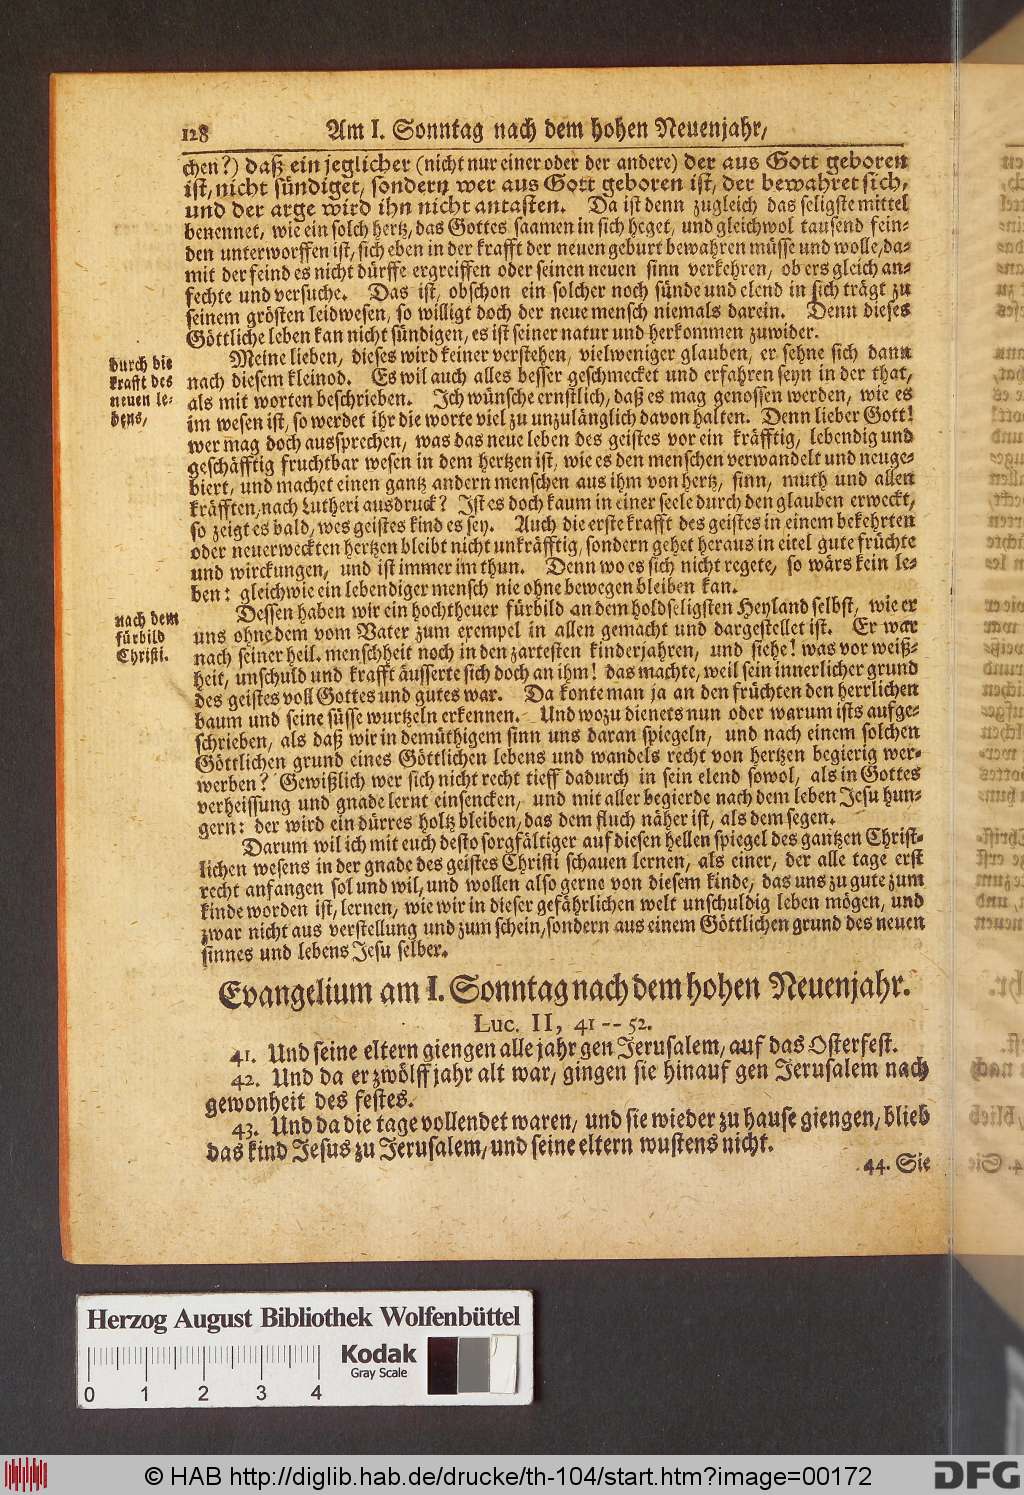 128 Am I. Sonntag nach dem hohen Neuenjahr,
chen?) daß ein jeglicher (nicht nur einer oder der andere) der aus Gott geboren
ist, nicht sündiget, sondern wer aus Gott geboren ist, der bewahret sich,
und der arge wird ihn nicht antasten. Da ist denn zugleich das seligste mittel
benennet, wie ein solch hertz, das Gottes saamen in sich heget, und gleichwol tausend fein-
den unterworffen ist, sich eben in der krafft der neuen geburt bewahren müsse und wolle, da-
mit der feind es nicht dürffe ergreiffen oder seinen neuen sinn verkehren, ob ers gleich an-
fechte und versuche. Das ist, obschon ein solcher noch sünde und elend in sich trägt zu
seinem grösten leidwesen, so willigt doch der neue mensch niemals darein. Denn dieses
Göttliche leben kan nicht sündigen, es ist seiner natur und herkommen zuwider.
durch die
krafft des
neuen le-
bens,
Meine lieben, dieses wird keiner verstehen, vielweniger glauben, er sehne sich dann
nach diesem kleinod. Es wil auch alles besser geschmecket und erfahren seyn in der that,
als mit worten beschrieben. Jch wünsche ernstlich, daß es mag genossen werden, wie es
im wesen ist, so werdet ihr die worte viel zu unzulänglich davon halten. Denn lieber Gott!
wer mag doch aussprechen, was das neue leben des geistes vor ein kräfftig, lebendig und
geschäfftig fruchtbar wesen in dem hertzen ist, wie es den menschen verwandelt und neuge-
biert, und machet einen gantz andern menschen aus ihm von hertz, sinn, muth und allen
kräfften, nach Lutheri ausdruck? Jst es doch kaum in einer seele durch den glauben erweckt,
so zeigt es bald, wes geistes kind es sey. Auch die erste krafft des geistes in einem bekehrten
oder neuerweckten hertzen bleibt nicht unkräfftig, sondern gehet heraus in eitel gute früchte
und wirckungen, und ist immer im thun. Denn wo es sich nicht regete, so wärs kein le-
ben: gleichwie ein lebendiger mensch nie ohne bewegen bleiben kan.
nach dem
fürbild
Christi.
Dessen haben wir ein hochtheuer fürbild an dem holdseligsten Heyland selbst, wie er
uns ohnedem vom Vater zum exempel in allen gemacht und dargestellet ist. Er war
nach seiner heil. menschheit noch in den zartesten kinderjahren, und siehe! was vor weiß-
heit, unschuld und krafft äusserte sich doch an ihm! das machte, weil sein innerlicher grund
des geistes voll Gottes und gutes war. Da konte man ja an den früchten den herrlichen
baum und seine süsse wurtzeln erkennen. Und wozu dienets nun oder warum ists aufge-
schrieben, als daß wir in demüthigem sinn uns daran spiegeln, und nach einem solchen
Göttlichen grund eines Göttlichen lebens und wandels recht von hertzen begierig wer-
werben? Gewißlich wer sich nicht recht tieff dadurch in sein elend sowol, als in Gottes
verheissung und gnade lernt einsencken, und mit aller begierde nach dem leben Jesu hun-
gern: der wird ein dürres holtz bleiben, das dem fluch näher ist, als dem segen.
Darum wil ich mit euch desto sorgfältiger auf diesen hellen spiegel des gantzen Christ-
lichen wesens in der gnade des geistes Christi schauen lernen, als einer, der alle tage erst
recht anfangen sol und wil, und wollen also gerne von diesem kinde, das uns zu gute zum
kinde worden ist, lernen, wie wir in dieser gefährlichen welt unschuldig leben mögen, und
zwar nicht aus verstellung und zum schein, sondern aus einem Göttlichen grund des neuen
sinnes und lebens Jesu selber.
Evangelium am I. Sonntag nach dem hohen Neuenjahr.
Luc. II, 41--52.
41. Und seine eltern giengen alle jahr gen Jerusalem, auf das Osterfest.
42. Und da er zwölff jahr alt war, gingen sie hinauf gen Jerusalem nach
gewonheit des festes.
43. Und da die tage vollendet waren, und sie wieder zu hause giengen, blieb
das kind Jesus zu Jerusalem, und seine eltern wustens nicht.
44. Sie
Herzog August Bibliothek Wolfenbüttel
Kodak
Gray Scale
0 1 2 3 4
© HAB http://diglib.hab.de/drucke/th-104/start.htm?image=00172
DFG